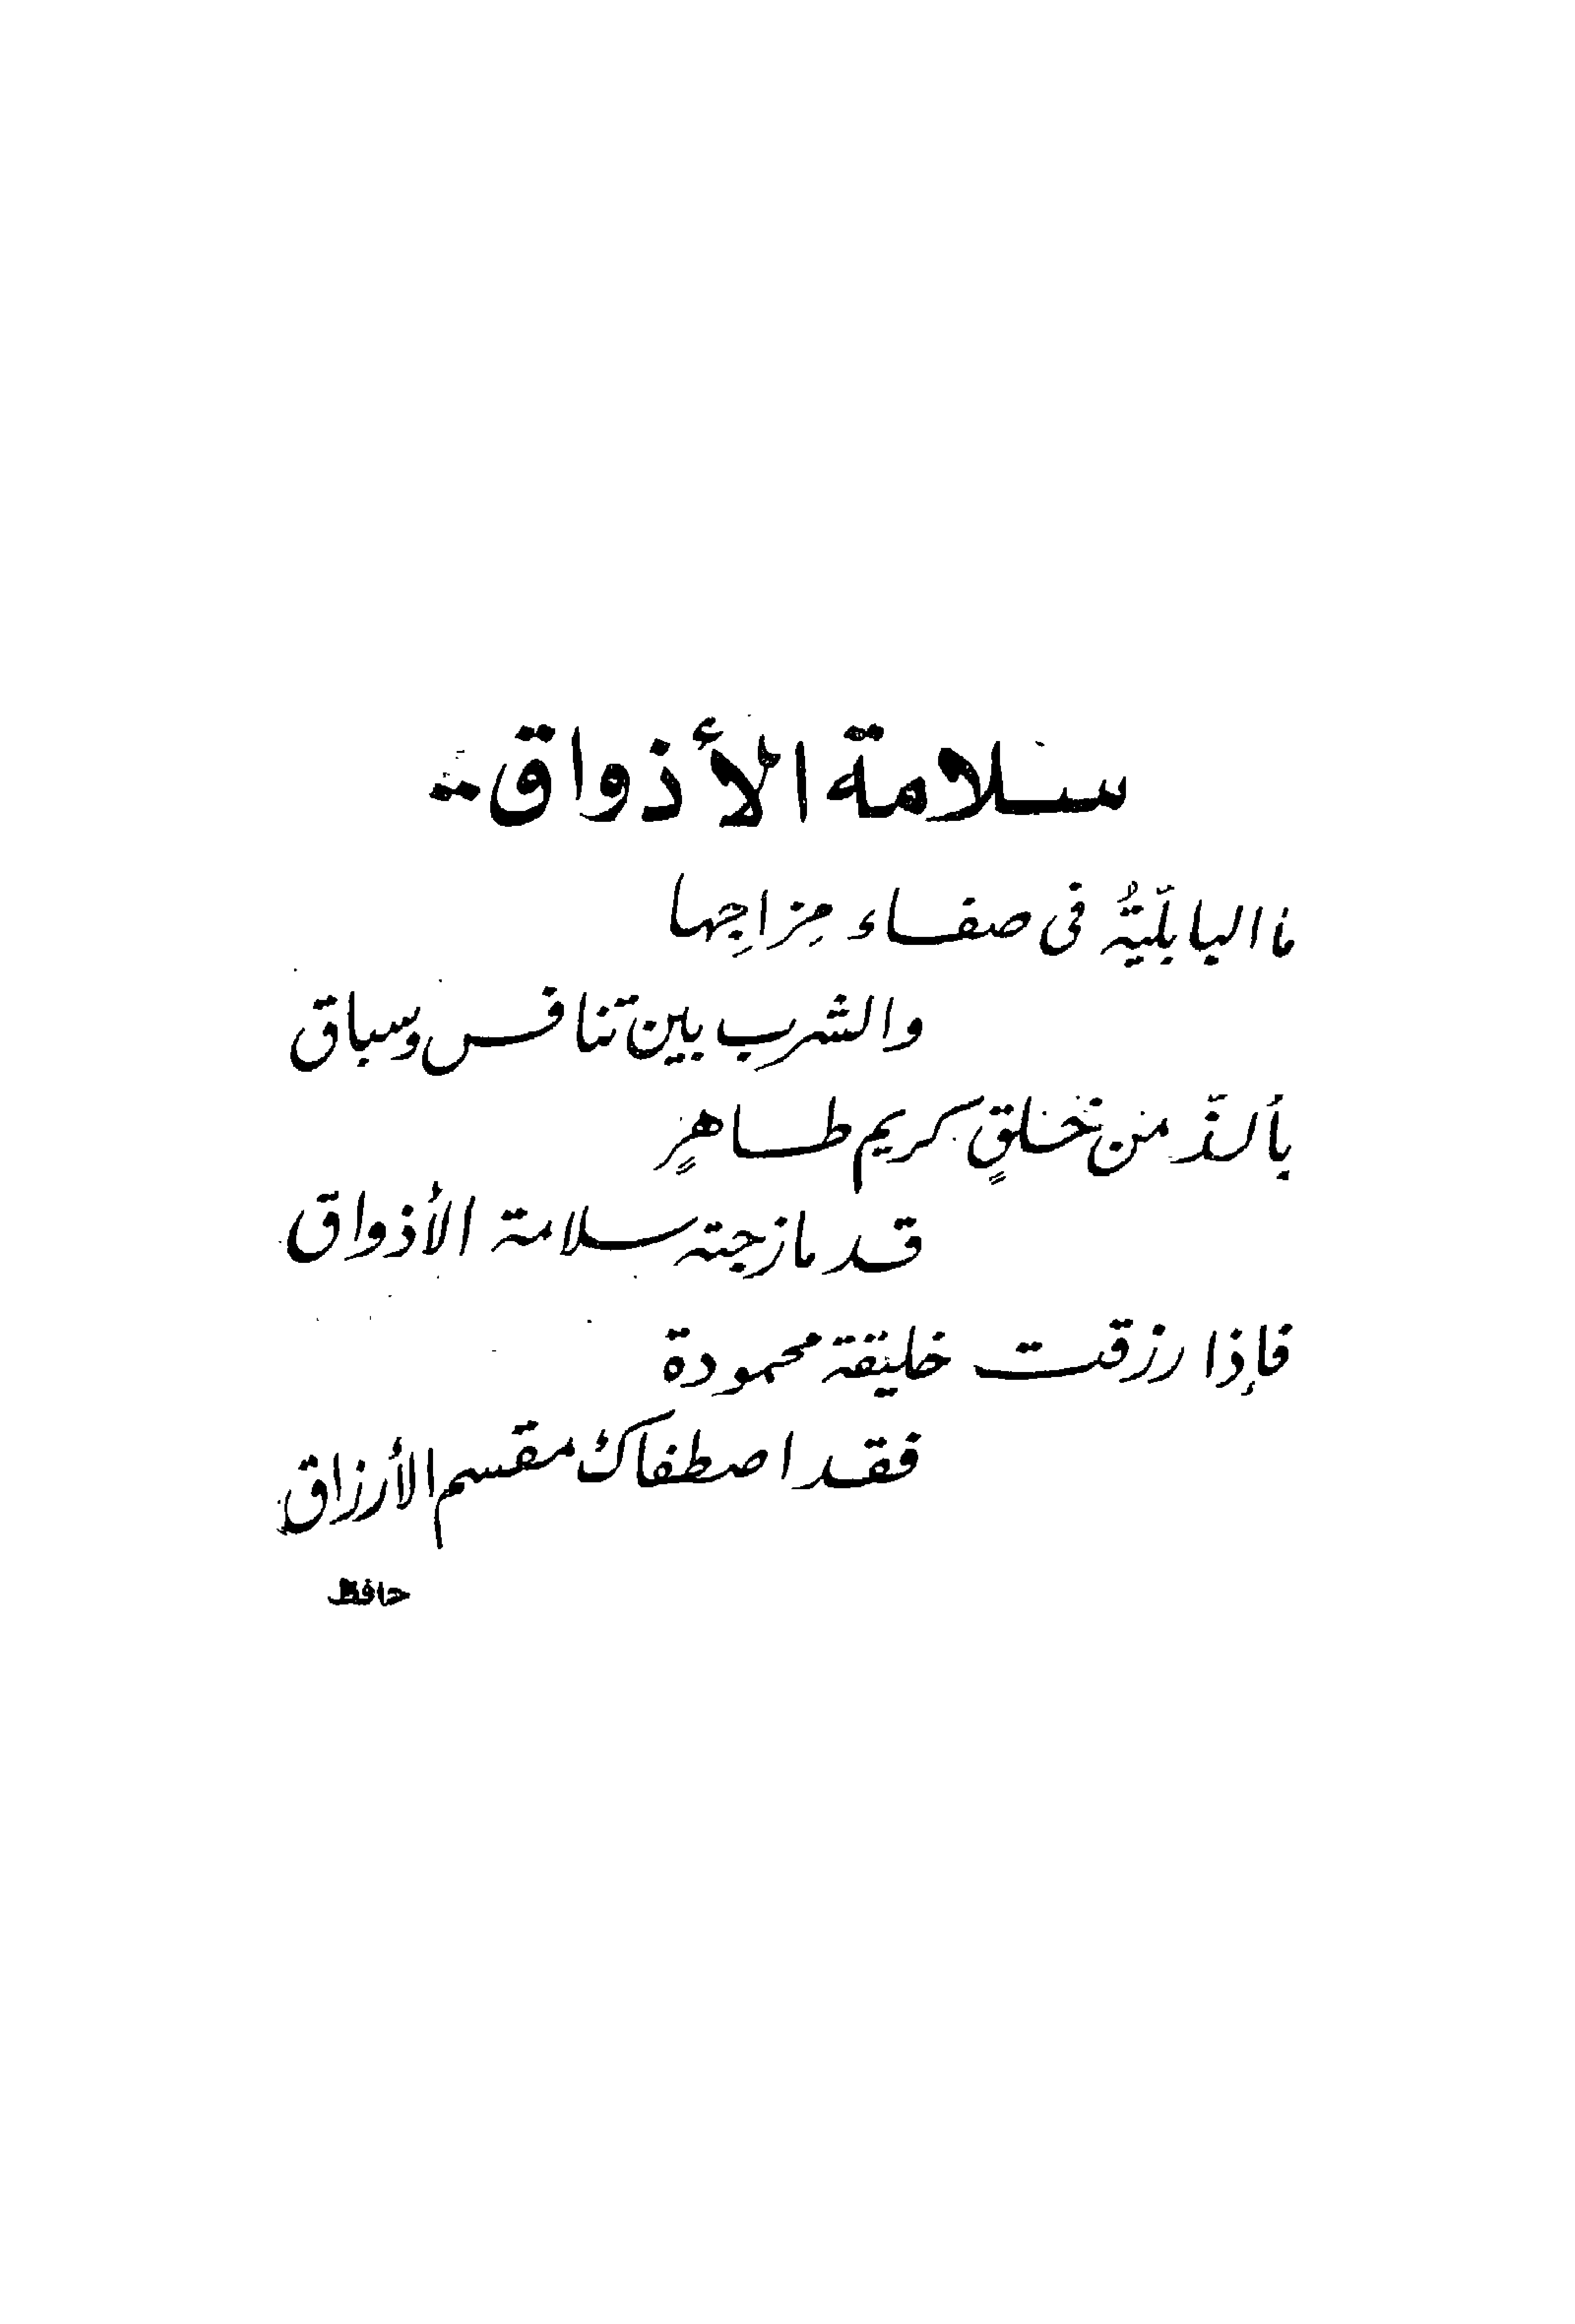 سلامة الأذواق..
ما البابلّيةُ فى صفاء مِزاجِها
والشرب بين تنافس وسباق
بألذّ من خلقٍ كريم طاهرٍ
قد مازجته سلامة الأذواق
فإذا رزقت خليقة محمودة
فقد اصطفاك مقسم الأرزاق
حافظ